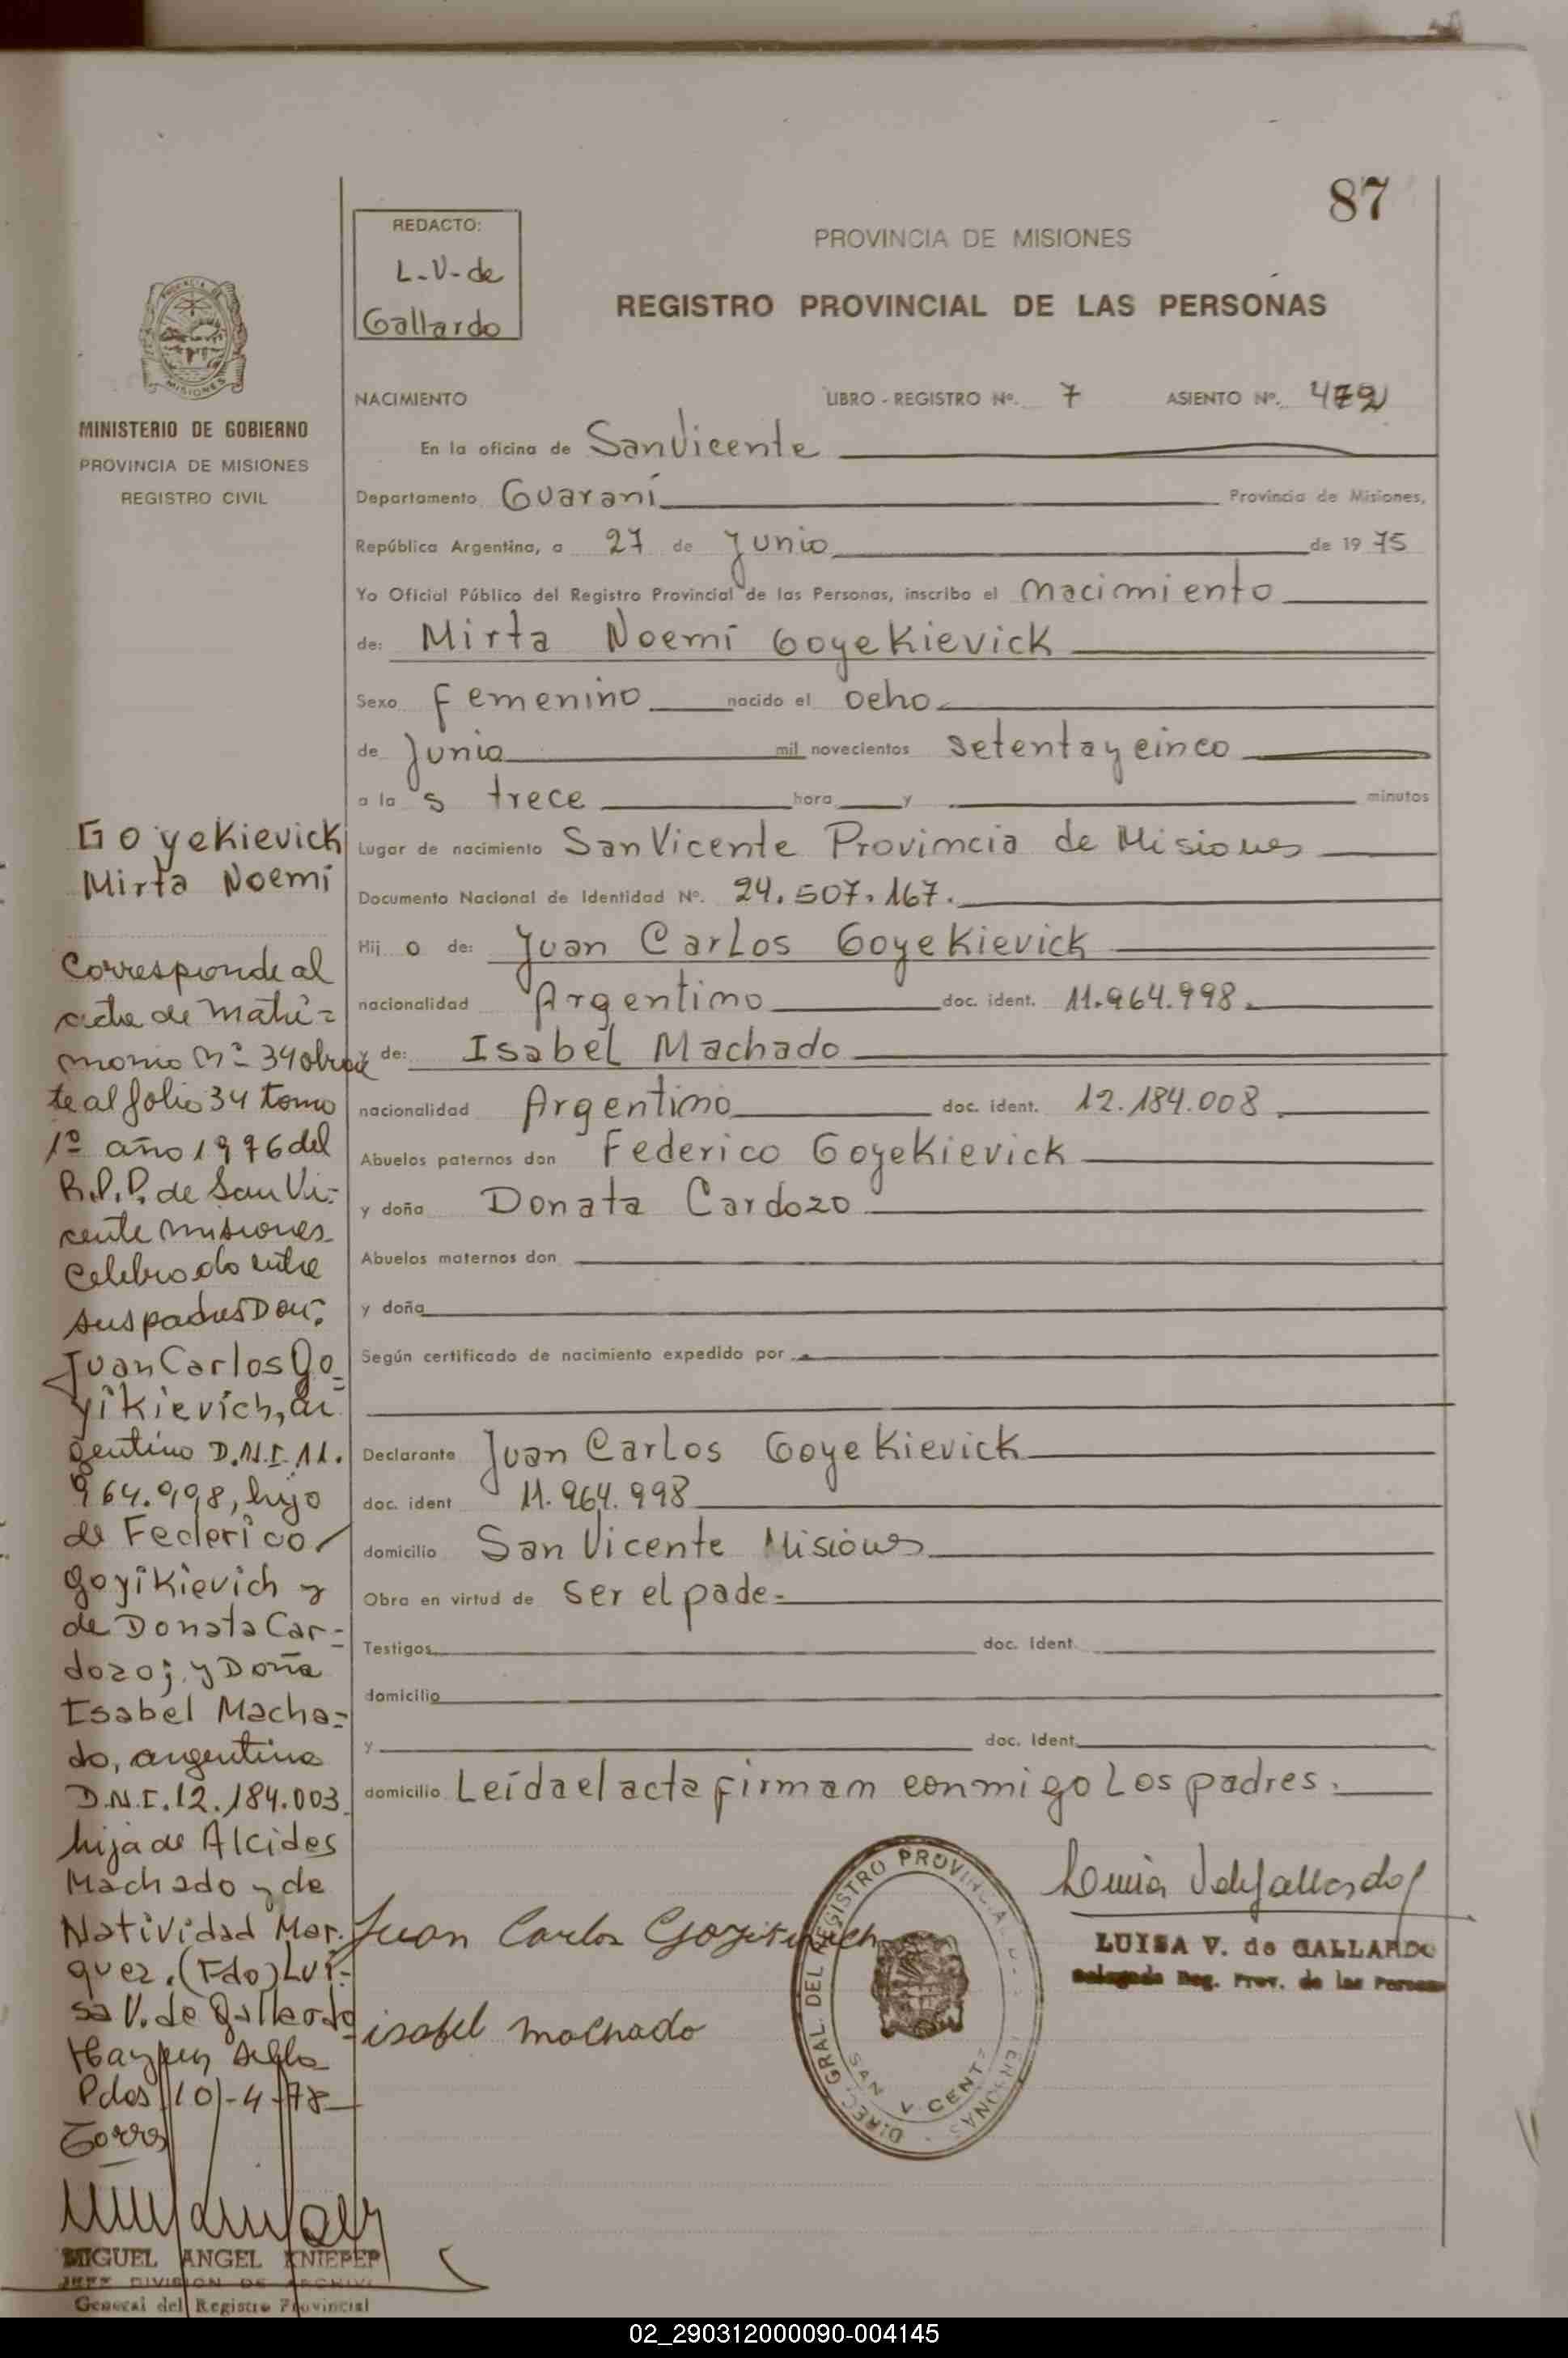 87
REDACTO:
L-V-de
Gallardo
PROVINCIA DE MISIONES
REGISTRO PROVINCIAL DE LAS PERSONAS
PROVINCIA DE
MISIONES
MINISTERIO DE GOBIERNO
PROVINCIA DE MISIONES
REGISTRO CIVIL
NACIMIENTO LIBRO - REGISTRO Nº. 7 ASIENTO Nº.
En la oficina de San Vicente
Departamento Guaraní Provincia de Misiones,
República Argentina, a 27 de Junio de 19 75
Yo Oficial Público del Registro Provincial de las Personas, inscribo el nacimiento
de: Mirta Noemí Goyekievick
Sexo femenino nacido el ocho
de Junio mil novecientos setenta y cinco
a la s trece hora y minutos
Lugar de nacimiento San Vicente Provincia de Misiones
Documento Nacional de Identidad Nº. 24.507.167.
Hij o de: Juan Carlos Goyekievick
nacionalidad Argentino doc. ident. 11.964.998.
y de: Isabel Machado
nacionalidad Argentino doc. ident. 12.184.008.
Abuelos paternos don Federico Goyekievick
y doña Donata Cardozo
Abuelos maternos don
y doña
Según certificado de nacimiento expedido por
Declarante Juan Carlos Goyekievick
doc. ident 11.964.998
domicilio San Vicente Misiones
Obra en virtud de ser el pade=
Testigos doc. Ident.
domicilio
y doc. Ident.
domicilio Leída el acta firmam conmigo Los padres.
Goyekievick
Mirta Noemí
Corresponde al
acta de matri=
monio Nº- 34 obran
te al folio 34 tomo
1º año 1976 del
R.P.P. de San Vi=
cente misiones
celebrado entre
sus padres Don:
Juan Carlos Go=
yikievich, ar
gentino D.N.I. 11.
964.998, hijo
de Federico
Goyikievich y
de Donata Car=
dozo; y Doña
Isabel Macha=
do, argentina
D.N.I. 12.184.003
hija de Alcides
Machado y de
Natividad Mar.
quez. (Fdo) Lui=
sa V. de Gallardo
Hay un sello
Pdas 10-4-78
Torres
MIGUEL ANGEL KNIEPER
JEFE DIVISION DE ARCHIVO
General del Registro Provincial
Juan Carlos Goyikievich
isabel machado
DIREC. GRAL. DEL REGISTRO PROVINCIAL DE
SAN VICENTE
LUISA V. de GALLARDO
Delegada Reg. Prov. de las Personas
02_290312000090-004145